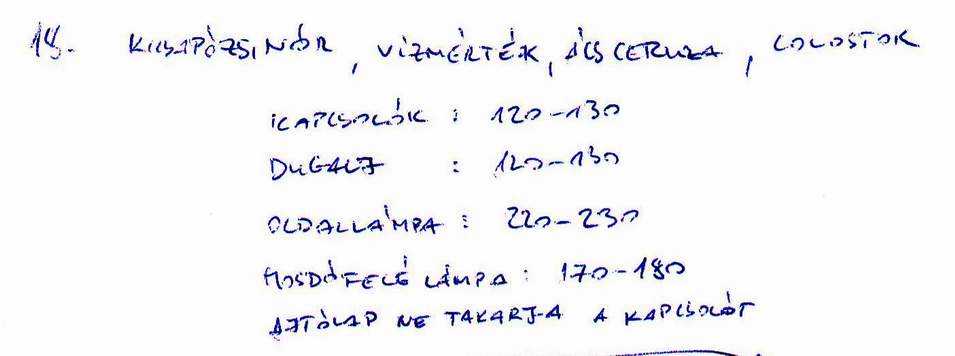 18. KICSAPÓZSINÓR, VÍZMÉRTÉK, ÁCSCERUZA, COLOSTOK
KAPCSOLÓK : 120-130
DUGALJ : 120-130
OLDALLÁMPA : 220-230
MOSDÓFELÉ LÁMPA : 170-180
AJTÓLAP NE TAKARJA A KAPCSOLÓT